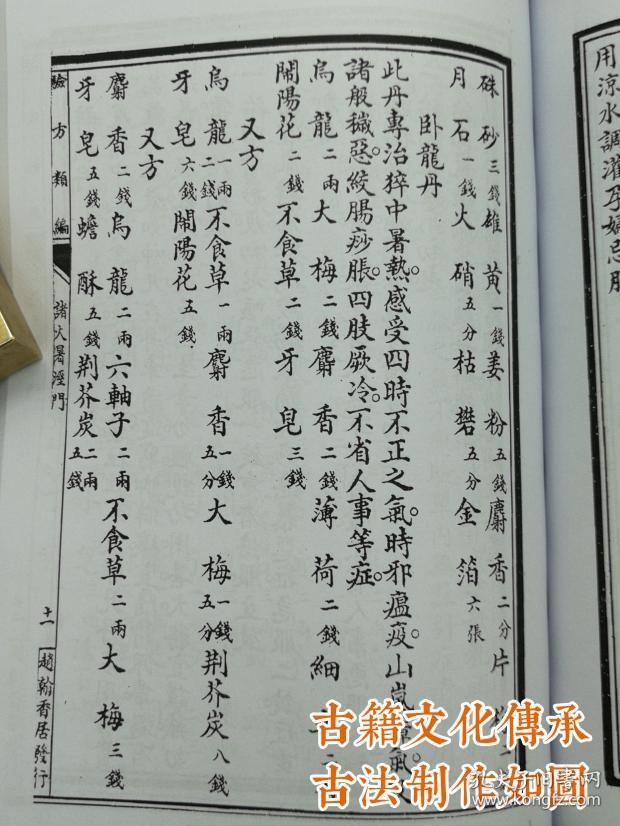 用涼水調灌孕婦忌服
硃砂三錢雄黃一錢姜粉五錢麝香二分片
月石一錢火硝五分枯礬五分金箔六張
卧龍丹
此丹專治猝中暑熱感受四時不正之氣。時邪瘟疫。山嵐瘴氣。
諸般穢惡。絞腸痧脹。四肢厥冷。不省人事等症。
烏龍二兩大梅二錢麝香二錢薄荷二錢細
鬧陽花二錢不食草二錢牙皂三錢
又方
烏龍一兩二錢不食草一兩麝香一錢五分大梅一錢五分荆芥炭八錢
牙皂六錢鬧陽花五錢
又方
麝香二錢烏龍二兩六軸子二兩不食草二兩大梅三錢
牙皂五錢蟾酥五錢荆芥炭二兩五錢
驗方類編
諸火暑溼門
十一
趙翰香居發行
古籍文化傳承
古法制作如圖
孔夫子旧书网
www.kongfz.com